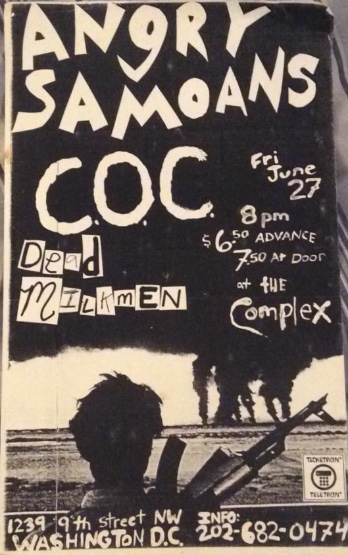 ANGRY
SAMOANS
C.O.C.
Fri
June
27
8pm
$6.50 ADVANCE
7.50 AT DOOR
at THE
Complex
Dead
MILKMEN
TICKETRON
TELETRON
1239 9th street NW
WASHINGTON D.C.
INFO:
202-682-0474